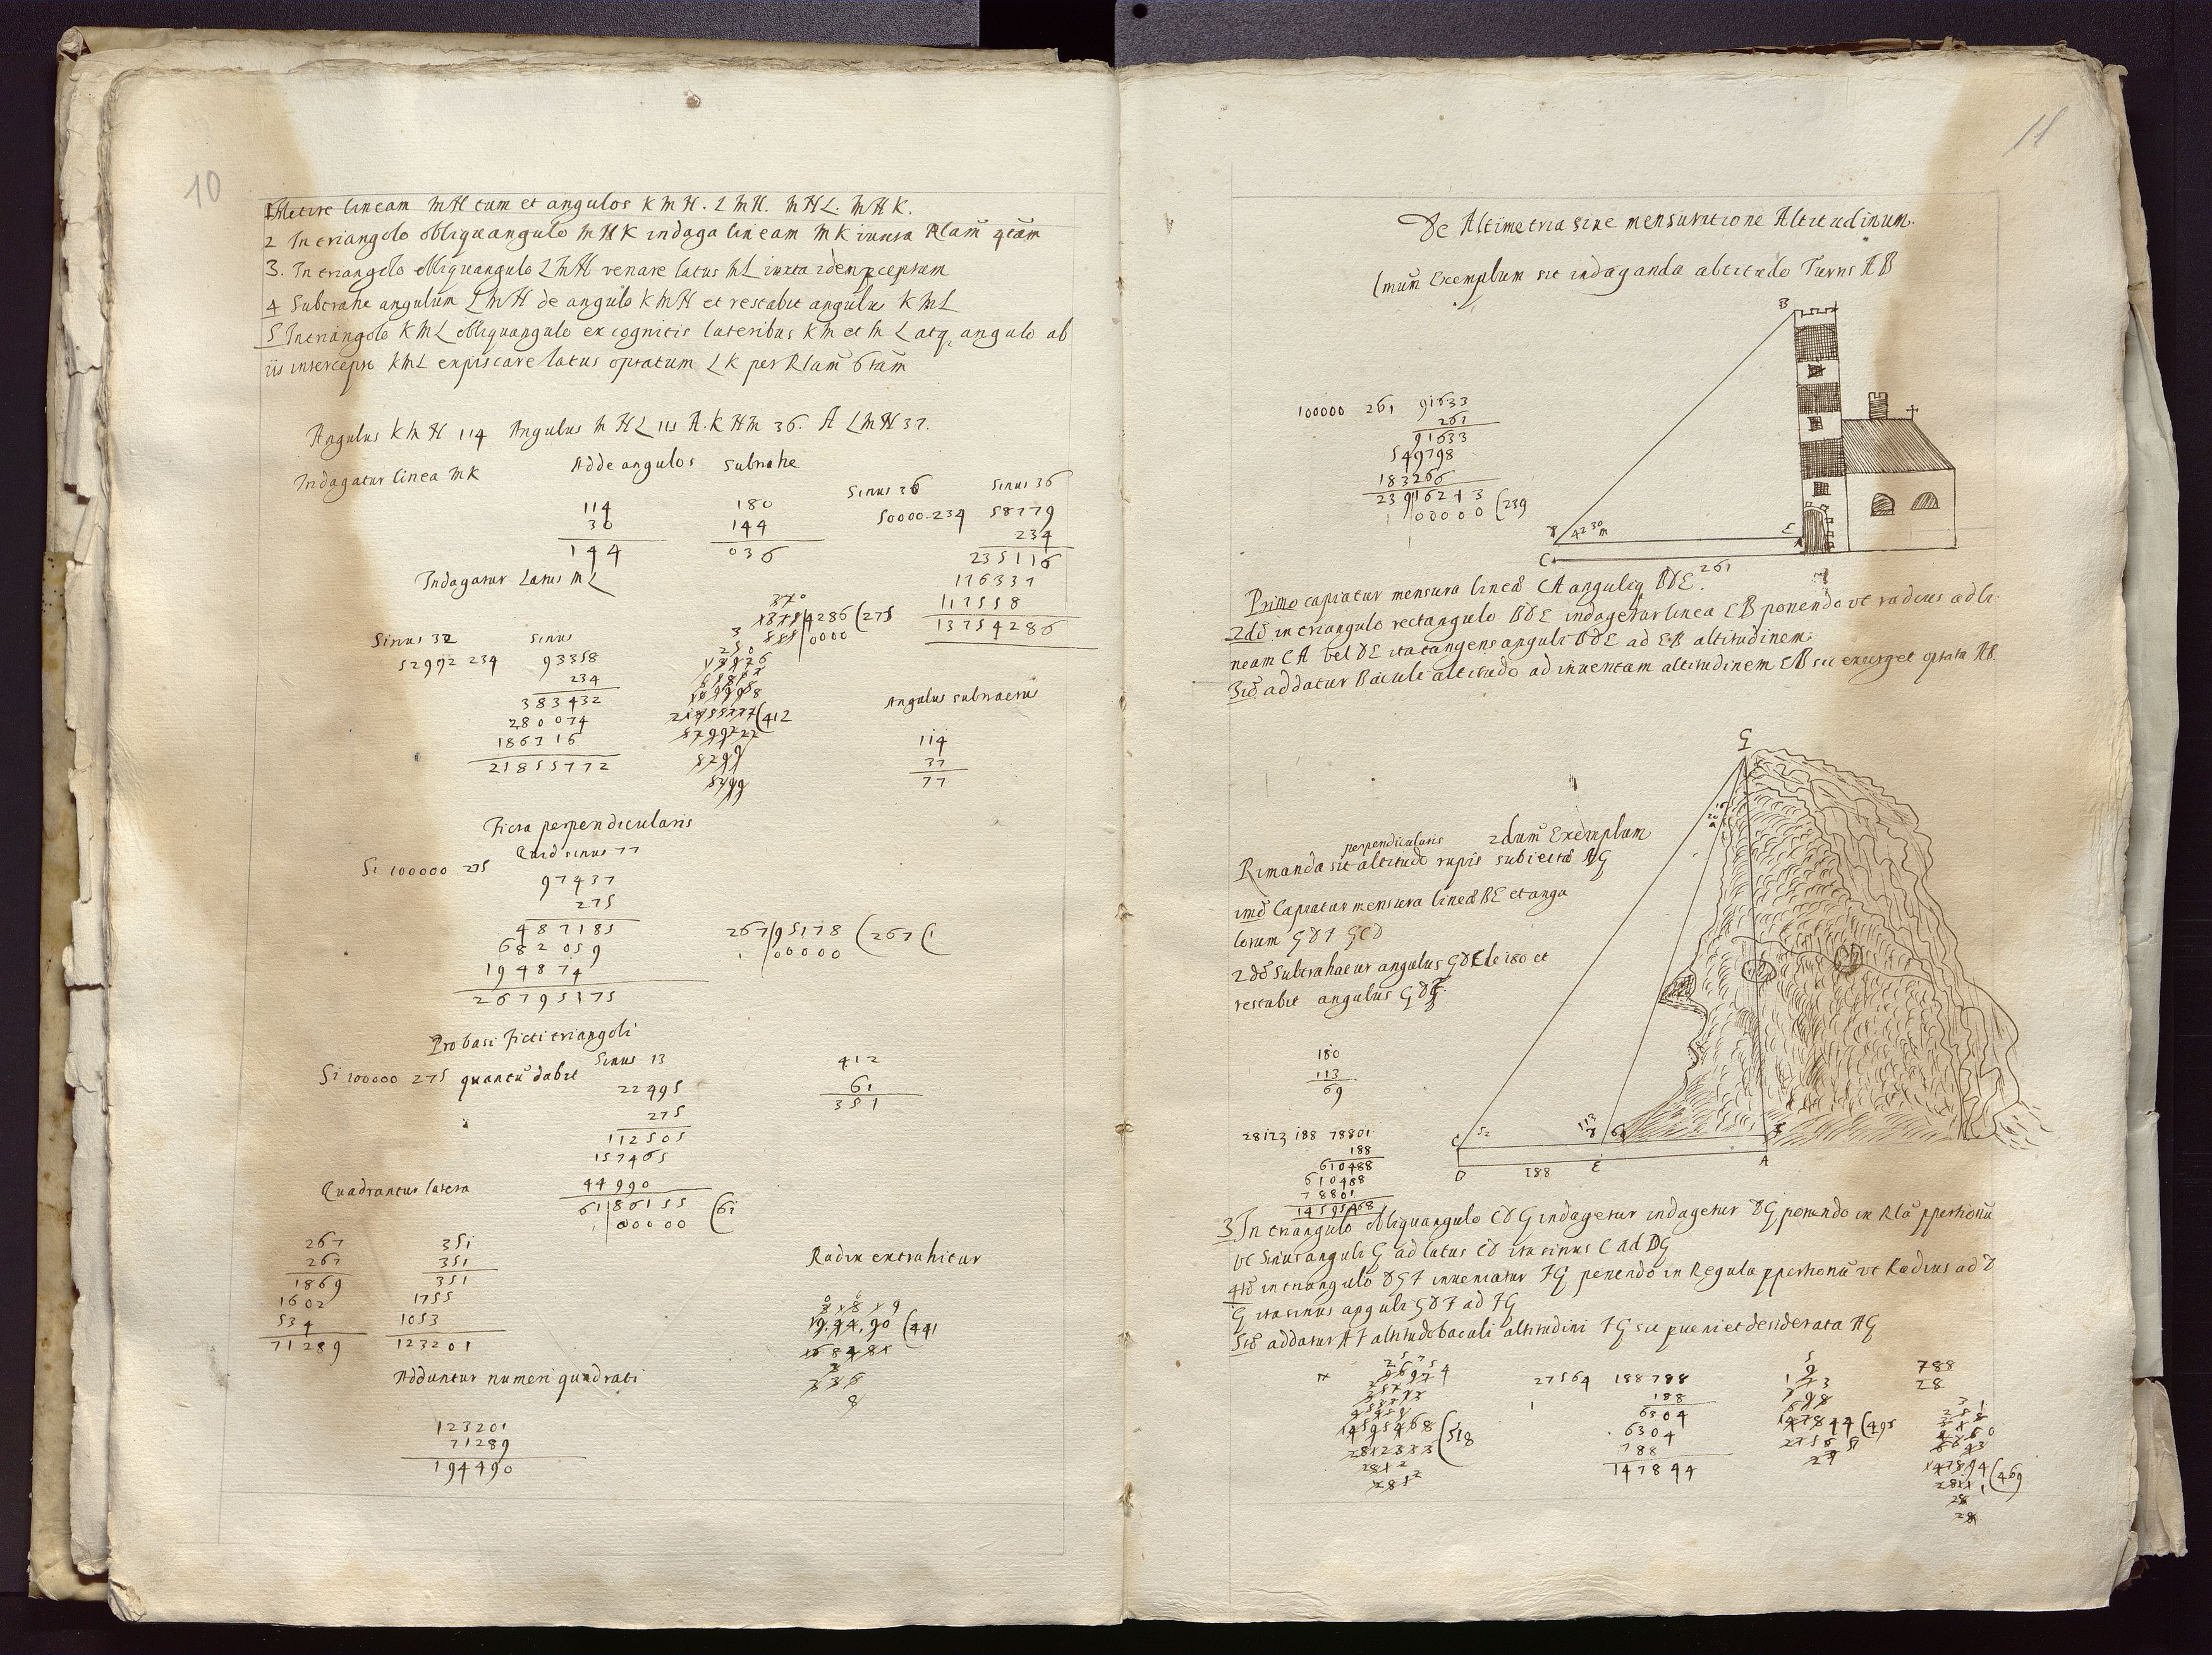 10
1 Metire lineam MH cum et angulos KMH. LMH. MHL. MHK.
2 In triangolo obliquangulo MHK indaga lineam MK iuxta Rlam̃ 4tam̃
3. In triangolo obliquangulo LMH venare latus ML iuxta idem pceptum
4 Subtrahe angulum LMH de angulo KMH et restabit angulus KML
5 In triangolo KML obliquangulo ex cognitis lateribus KM et ML atq, angulo ab
iis intercepto KML expiscare latus optatum LK per Rlam̃ 6tam̃
Angulus KMH 114 Angulus MHL 115 A. KHM 36. A LMH 37.
Indagatur linea MK
Adde angulos
114
30
144
Subtrahe
180
144
036
Sinus 36
50000-234
Sinus 36
58779
234
235116
176337
117558
13754286
4286 (275
0000
Indagatur Latus ML
Sinus 32
52992 234
Sinus
93358
234
383432
280074
186716
21855772
(412
Angulus subtractus
114
37
77
Ficta perpendicularis
Si 100000 275
Quid sinus 77
97437
275
487185
682059
194874
26795175
267|95178 (267 (1
1|00000
Pro basi Ficti triangoli
Si 100000 275 quantũ dabit
Sinus 13
22495
275
112505
157465
44990
61|86155 (61
1|00000
412
61
351
Quadrantus latera
267
267
1869
1602
534
71289
351
351
351
1755
1053
123201
Radix extrahitur
19.44.90 (441
Adduntur numeri quadrati
123201
71289
194490
11
De Altimetria sive mensuratione Altitudinum.
1mum̃ Exemplum sit indaganda altitudo Turris AB
B
100000 261 91633
261
91633
549798
183266
239|16213 (239
1|00000
42 30 m
E
A
C
261
Primo capiatur mensura lineæ CA anguliq BDE.
2dõ in triangulo rectangulo BDE indagetur linea EB ponendo ut radius ad li-
neam CA vel DE ita tangens anguli BDE ad EB altitudinem.
3iõ addatur Baculi altitudo ad inventam altitudinem EB sic exurget optata AB.
G
2dum̃ Exemplum
perpendicularis
Rimanda sit altitudo rupis subiectæ AG
imõ Capiatur mensura lineæ DE et angu
lorum GDF GCD
2dõ Subtrahatur angulus GDE de 180 et
restabit angulus GDF.
180
113
69
28123 188 78801
188
610488
610488
78801
14595468
C
52
113
D
E
188
A
3 In triangulo obliquangulo CDG indagetur indagetur DG ponendo in Rla pportionũ
ut Sinus anguli G ad latus CD ita sinus C ad DG
4tõ in triangulo DGF inveniatur FG ponendo in Regula pportionũ ut Radius ad D
G ita sinus anguli GDF ad FG
5tõ addatur AF altitudo baculi altitudini FG sic pueniet desiderata AG
(518
27564 188 788
1
188
6304
6304
788
147844
(495
788
28
(469